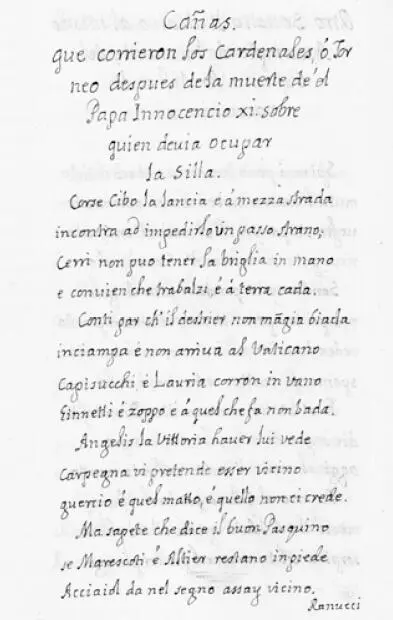 Cañas.
que corrieron los Cardenales, ó Tor
neo despues de la muerte de él
Papa Innocencio xi. sobre
quien devia ocupar
la Silla.
Corse Cibo la lancia é á mezza strada
incontra ad impedirlo un passo strano;
Cerri non puo tener la briglia in mano
e convien che trabalzi, é á terra cada.
Conti par ch'il destrier non mãgia biada
inciampa é non arriua al Vaticano
Capisucchi é Lauria corron in vano
Ginnetti é zoppo e á quel che fa non bada.
Angelis la Vittoria haver lui vede
Carpegna vi pretende esser vicino
guercio é quel matto, é quello non ci crede.
Ma sapete che dice il buon Pasquino
se Marescoti é Altier restano in piede
Acciaiol da nel segno assay vicino.
Ranucci